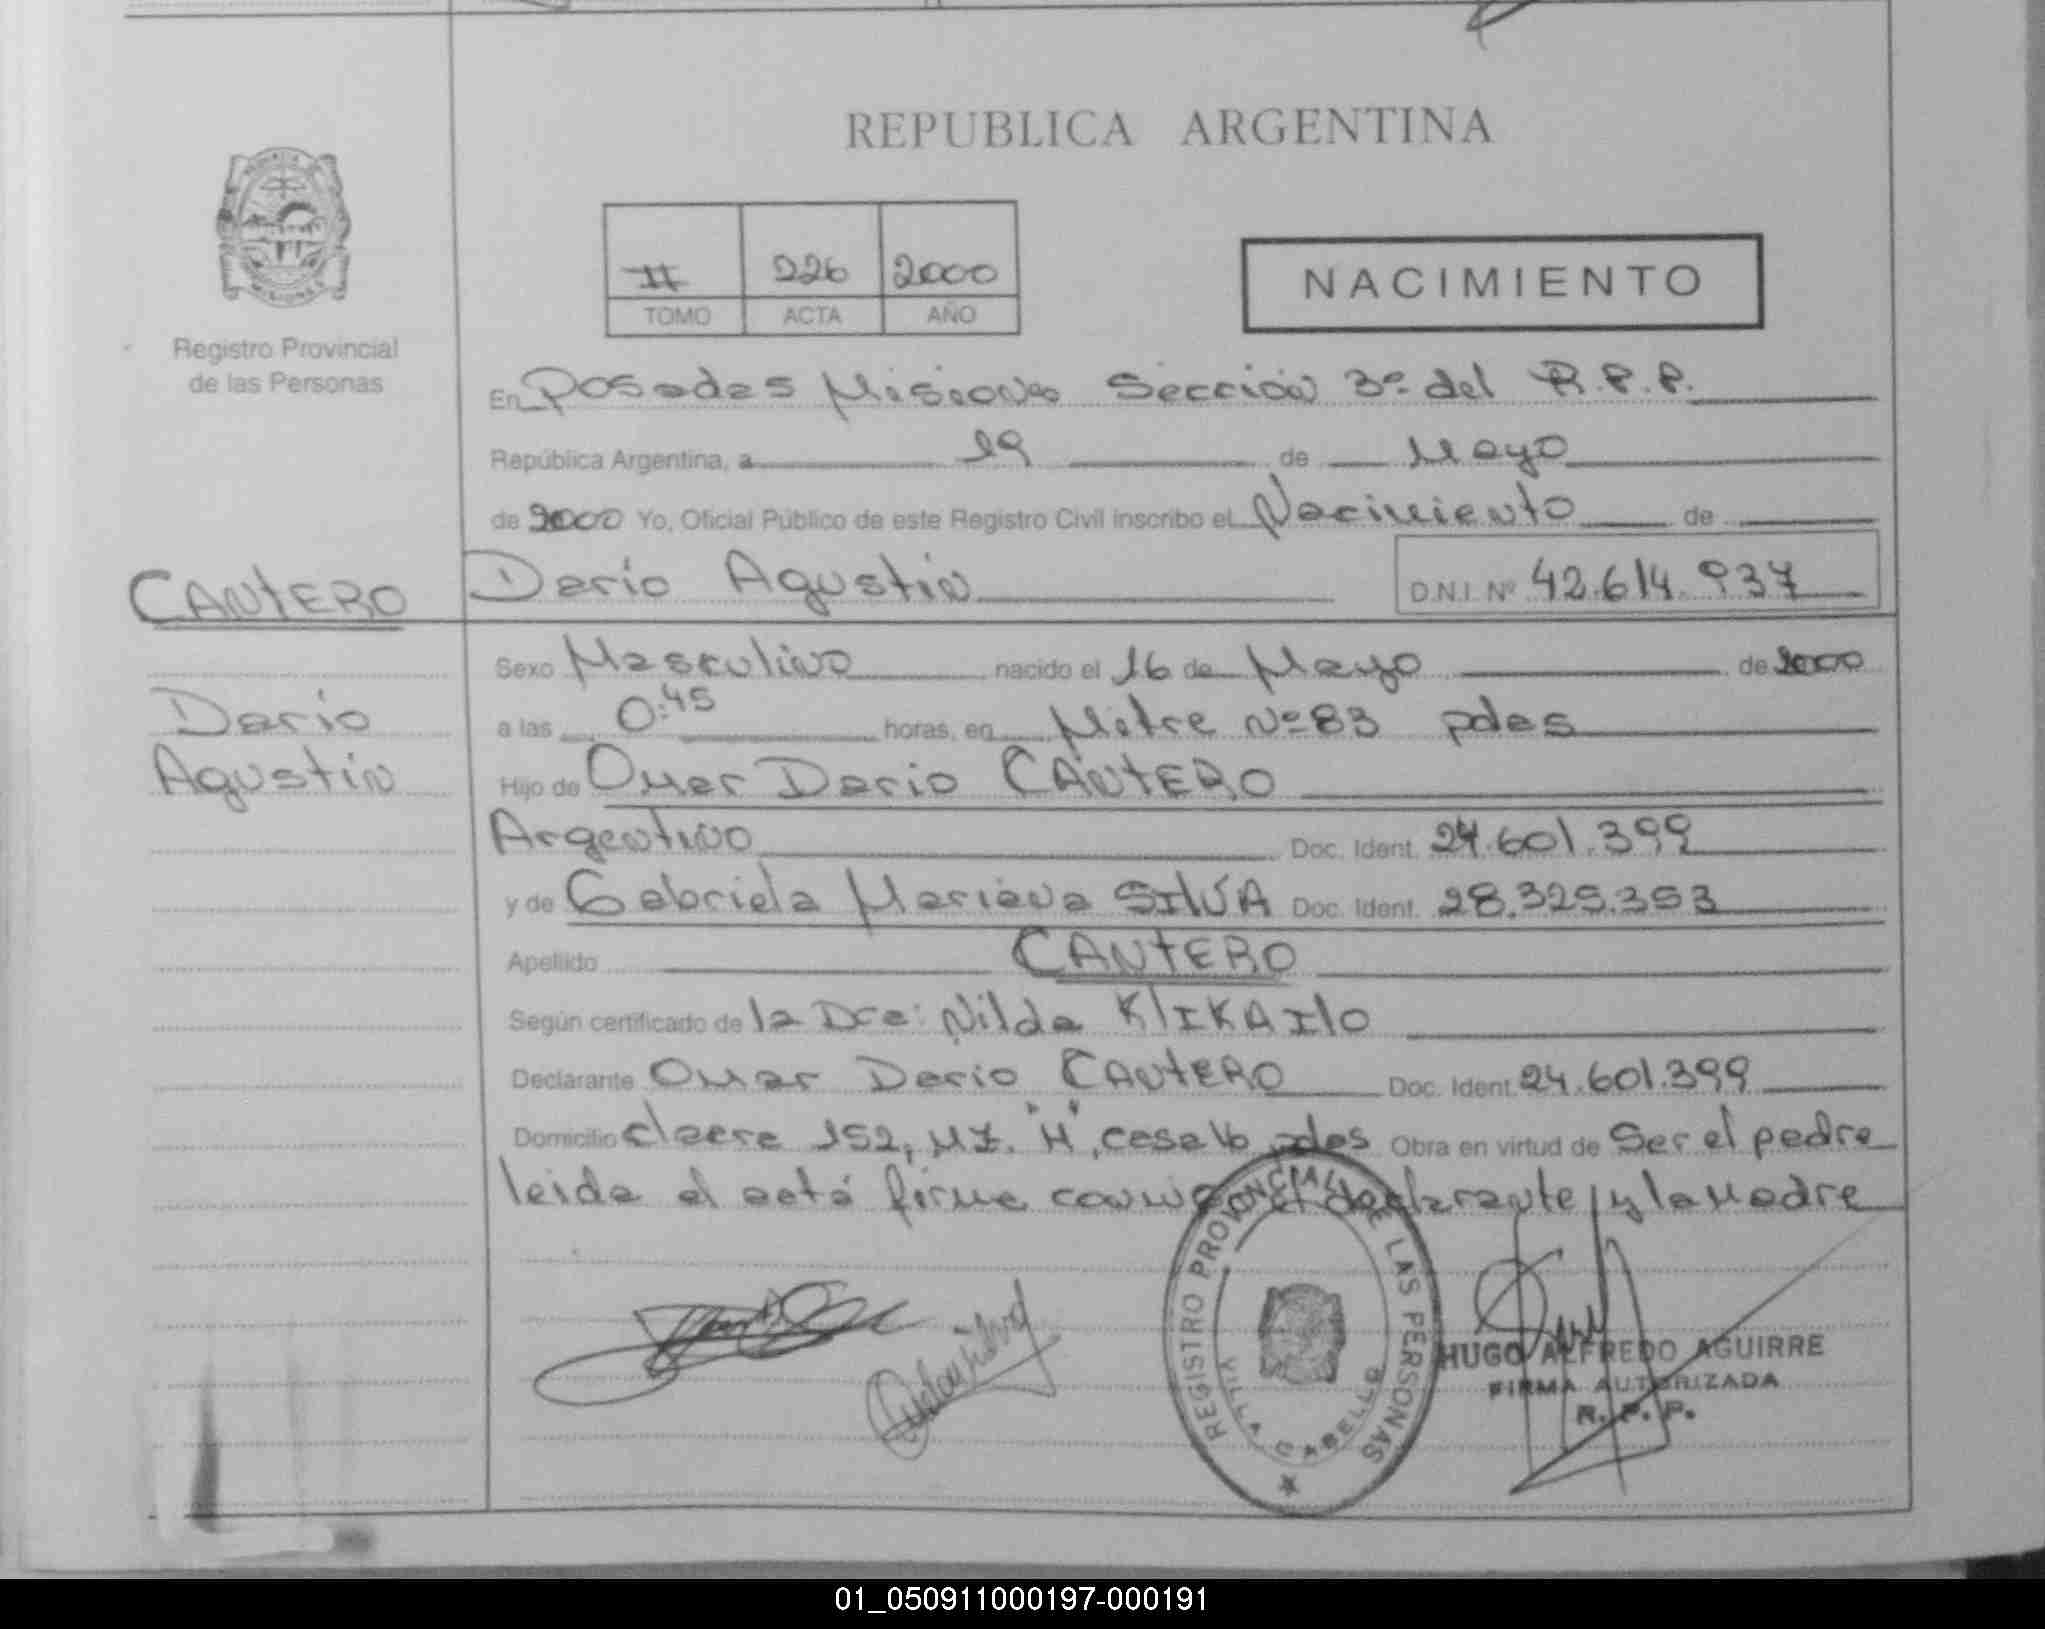 REPUBLICA ARGENTINA
II 226 2000
TOMO ACTA AÑO
NACIMIENTO
Registro Provincial
de las Personas
En Posadas Misiones Sección 3º del R.P.P.
República Argentina, a 19 de Mayo
de 2000 Yo, Oficial Público de este Registro Civil inscribo el Nacimiento de
CANTERO
Dario Agustin
Dario Agustin D.N.I. Nº 42.614.937
Sexo Masculino nacido el 16 de Mayo de 2000
a las 0:45 horas, en Mitre Nº 83 pdas
Hijo de Omar Dario CANTERO
Argentino Doc. Ident. 24.601.399
y de Gabriela Mariana SILVA Doc. Ident. 28.325.353
Apellido CANTERO
Según certificado de la Dra: Nilda KLIKAILO
Declarante Omar Dario CANTERO Doc. Ident. 24.601.399
Domicilio chacra 152, MZ. "H", casa 16 pdas Obra en virtud de Ser el padre
leida el acta firma conmigo el declarante y la madre
REGISTRO PROVINCIAL DE LAS PERSONAS
VILLA CABELLO
HUGO ALFREDO AGUIRRE
FIRMA AUTORIZADA
R. P. P.
01_050911000197-000191